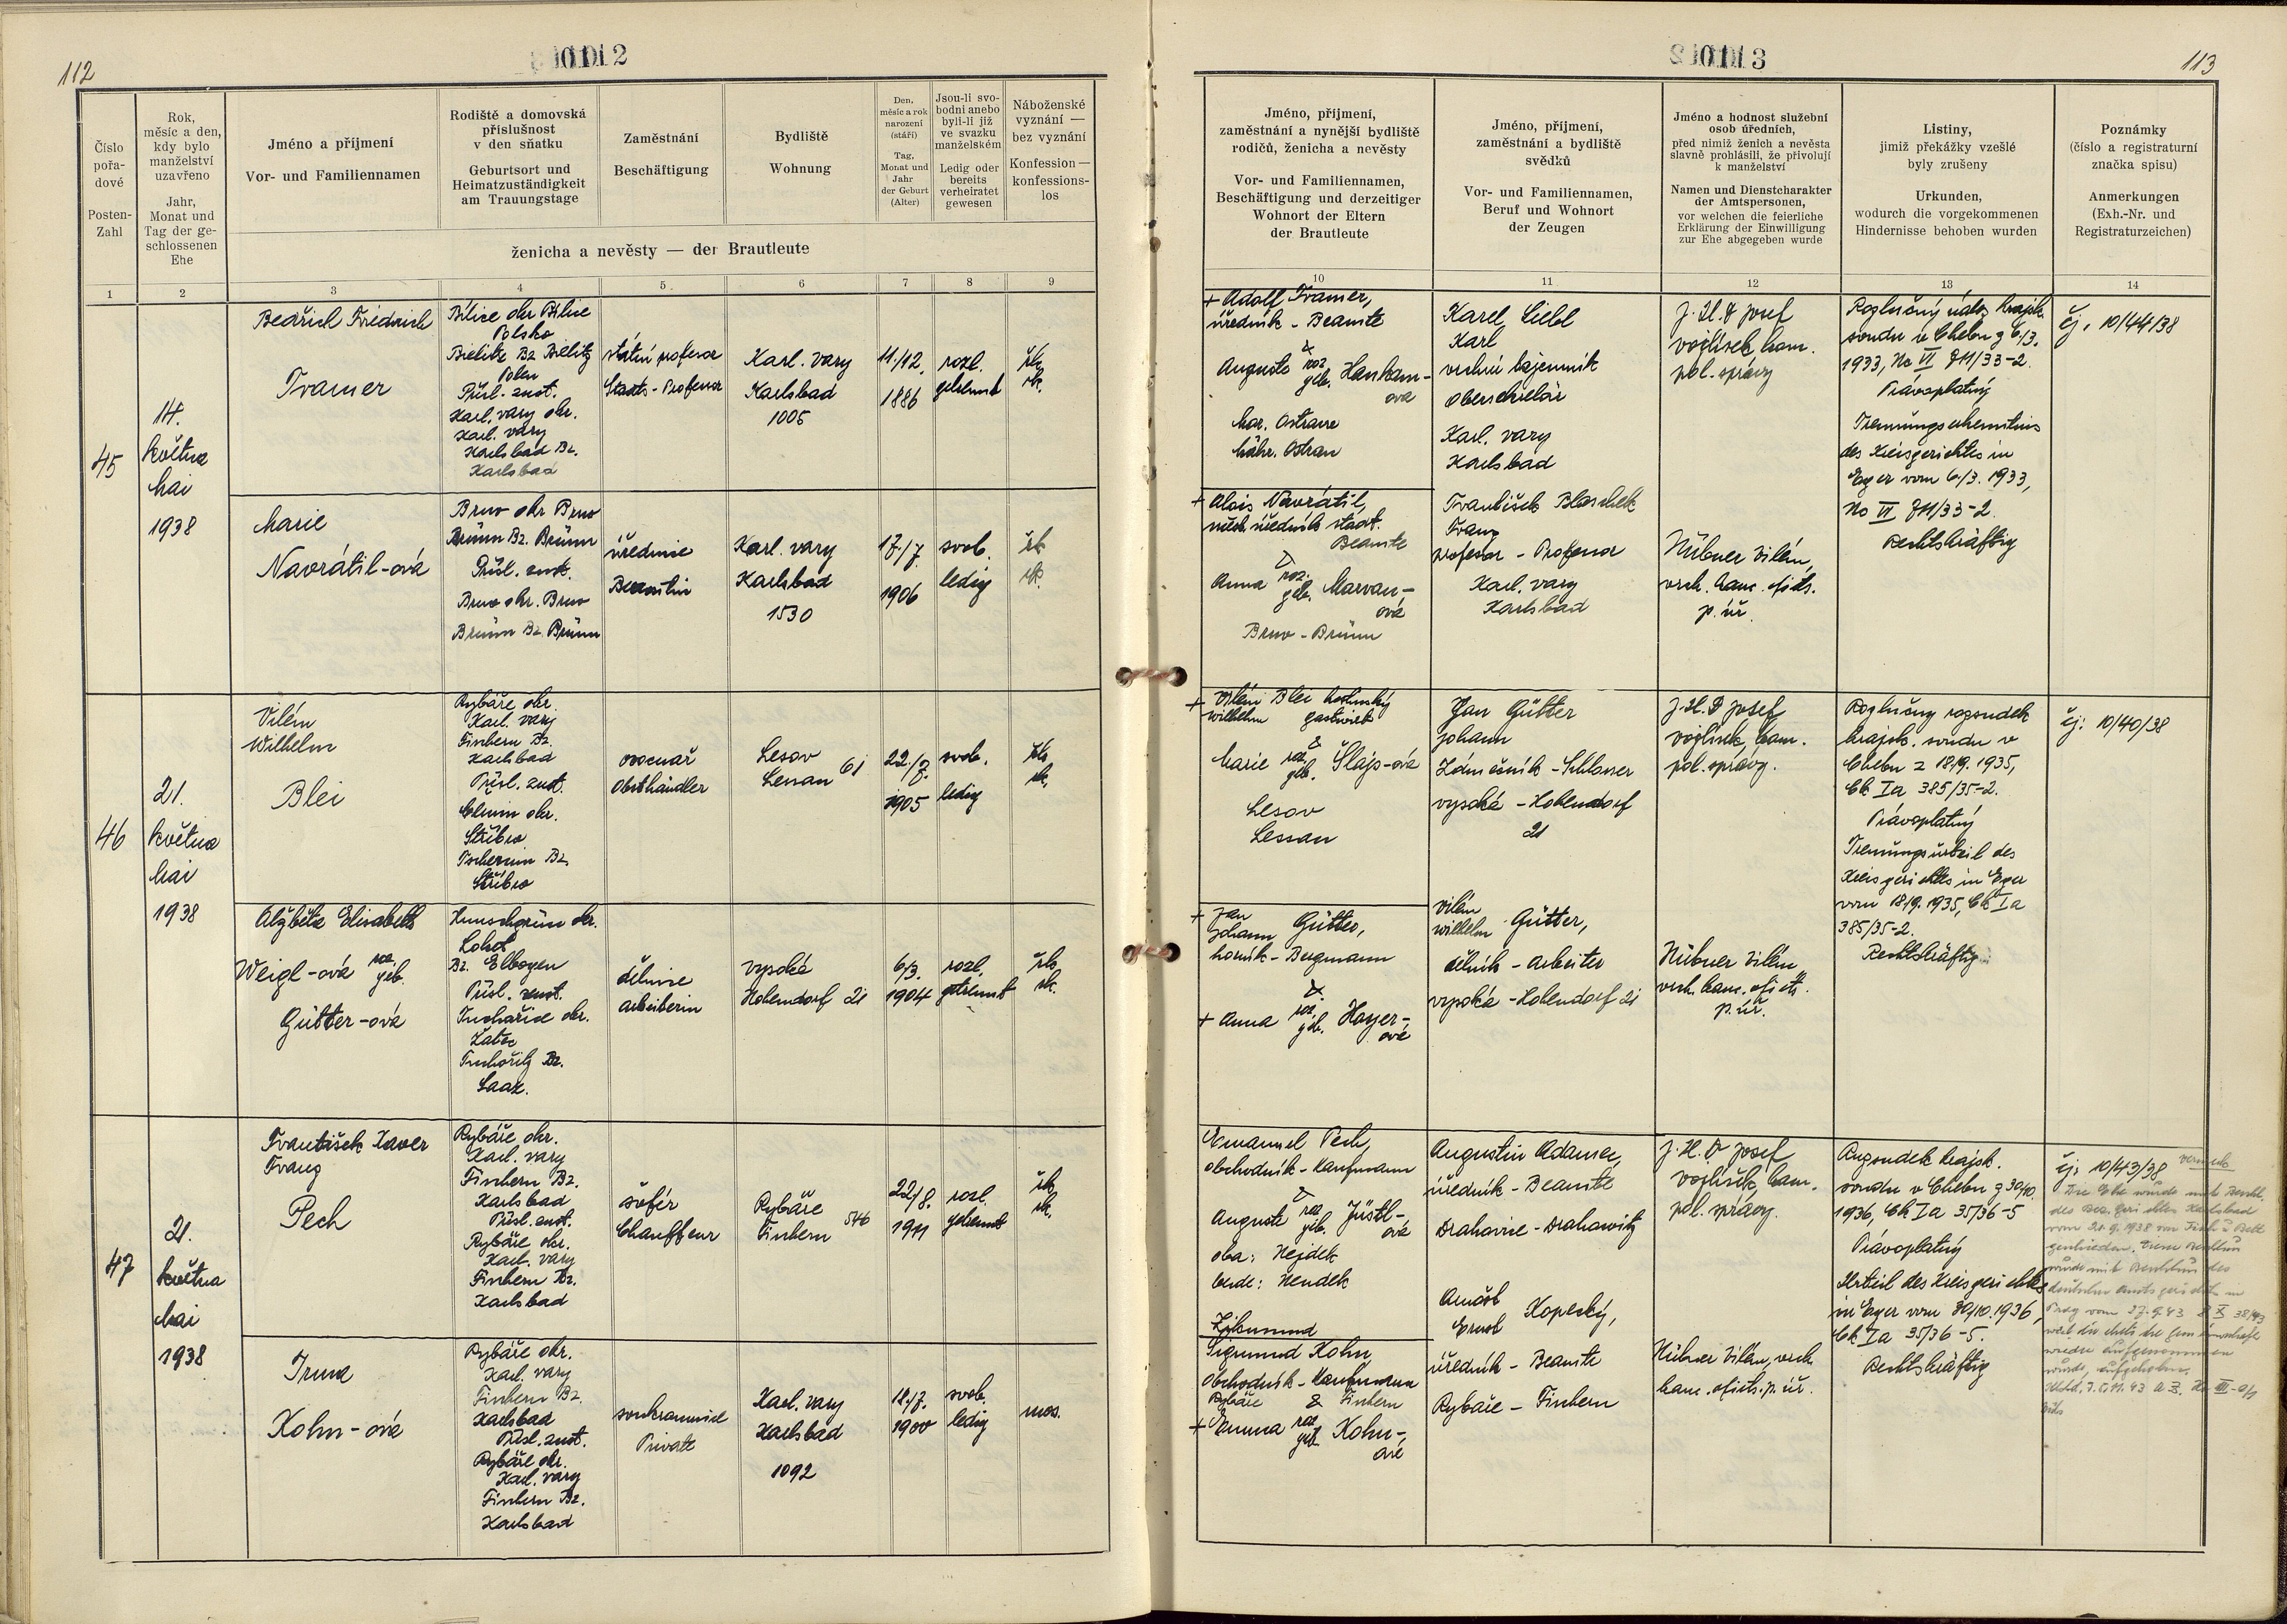 112
Číslo pořa-dové
Posten-Zahl
Rok, měsíc a den, kdy bylo manželství uzavřeno
Jahr, Monat und Tag der ge-schlossenen Ehe
Jméno a příjmení
Vor- und Familiennamen
Rodiště a domovská příslušnost v den sňatku
Geburtsort und Heimatzuständigkeit am Trauungstage
Zaměstnání
Beschäftigung
Bydliště
Wohnung
Den, měsíc a rok narození (stáří)
Tag, Monat und Jahr der Geburt (Alter)
Jsou-li svo-bodni anebo byli-li již ve svazku manželském
Ledig oder bereits verheiratet gewesen
Náboženské vyznání — bez vyznání
Konfession — konfessions-los
ženicha a nevěsty — der Brautleute
1 2 3 4 5 6 7 8 9
45
14.
května
Mai
1938
Bedřich Friedrich
Tramer
Bílice okr Bílice
Polsko
Bielitz Bz Bielitz
Polen
Přísl. - zust.
Karl. Vary okr.
Karl. Vary
Karlsbad Bz.
Karlsbad
státní profesor
Staats-Professor
Karl. Vary
Karlsbad
1005
11./12.
1886
rozl.
getrennt
řk.
rk.
Marie
Navrátil-ová
Brno okr Brno
Brünn Bz. Brünn
Přísl. zust.
Brno okr. Brno
Brünn Bz. Brünn
úřednice
Beamtin
Karl. Vary
Karlsbad
1530
17./7.
1906
svob.
ledig
řk.
rk.
46
21.
května
Mai
1938
Vilém
Wilhelm
Blei
Rybáře okr.
Karl. Vary
Fischern Bz.
Karlsbad
Přísl. zust.
okr.
Stříbro
Bz.
Stříbro
ovocnář
Obsthändler
Lesov
Lessau 61
22./7.
1905
svob.
ledig
řk.
rk.
Alžběta Elisabeth
Weigl-ová roz. geb.
Gütter-ová
okr.
Loket
Bz. Elbogen
Přísl. zust.
okr.
Žatec
Bz.
Saaz.
dělnice
Arbeiterin
Vysoká
Hohendorf 21
6/3.
1904
rozl.
getrennt
řk.
rk.
47
21.
května
Mai
1938
František Xaver
Franz
Pech
Rybáře okr.
Karl. Vary
Fischern Bz.
Karlsbad
Přísl. zust.
Rybáře okr.
Karl. Vary
Fischern Bz.
Karlsbad
šofér
Chauffeur
Rybáře
Fischern 546
22/8.
1911
rozl.
getrennt
řk.
rk.
Irma
Kohn-ová
Rybáře okr.
Karl. Vary
Fischern Bz.
Karlsbad
Přísl. zust.
Rybáře okr.
Karl. Vary
Fischern Bz.
Karlsbad
soukromnice
Private
Karl. Vary
Karlsbad
1092
18./7.
1900
svob.
ledig
mos.
113
Jméno, příjmení, zaměstnání a nynější bydliště rodičů, ženicha a nevěsty
Vor- und Familiennamen, Beschäftigung und derzeitiger Wohnort der Eltern der Brautleute
Jméno, příjmení, zaměstnání a bydliště svědků
Vor- und Familiennamen, Beruf und Wohnort der Zeugen
Jméno a hodnost služební osob úředních, před nimiž ženich a nevěsta slavně prohlásili, že přivolují k manželství
Namen und Dienstcharakter der Amtspersonen, vor welchen die feierliche Erklärung der Einwilligung zur Ehe abgegeben wurde
Listiny, jimiž překážky vzešlé byly zrušeny
Urkunden, wodurch die vorgekommenen Hindernisse behoben wurden
Poznámky (číslo a registraturní značka spisu)
Anmerkungen (Exh.-Nr. und Registraturzeichen)
10 11 12 13 14
+ Adolf Tramer,
úředník - Beamte
&
Auguste roz. geb. Hankam-ová
Mor. Ostrava
Mähr. Ostrau
Karel Liebl
Karl
vrchní tajemník
Obersekretär
Karl. Vary
Karlsbad
J. U. D Josef
Vojtíšek, kom.
pol. správy
Rozlučný nález krajsk.
soudu v Chebu z 6/3.
1933, No VI 711/33-2.
Právoplatný
Trennungserkenntnis
des Kreisgerichtes in
Eger vom 6/3. 1933,
No VI 711/33-2.
Rechtskräftig
čj. 10/44/38
+ Alois Navrátil,
měst. úředník städt.
Beamte
&
Anna roz. geb. Marvan-ová
Brno - Brünn
František Blaschek
Franz
profesor - Professor
Karl. Vary
Karlsbad
Hübner Vilém,
vrch. kanc. ofic.
p. úř.
+ Vilém Blei hostinský
Wilhelm gastwirt
&
Marie roz. geb. Šlajs-ová
Lesov
Lessau
Jan Gütter
Johann
Zámečník - Schlosser
Vysoká - Hohendorf
21
J. U. D Josef
Vojtíšek, kom.
pol. správy.
Rozlučný rozsudek
krajsk. soudu v
Chebu z 18/9. 1935,
Ck Ia 385/35-2.
Právoplatný
Trennungsurteil des
Kreisgerichtes in Eger
vom 18/9. 1935, Ck Ia
385/35-2.
Rechtskräftig
čj: 10/40/38
+ Jan
Johann Gütter,
horník - Bergmann
&
+ Anna roz. geb. Hoyer-ová
Vilém
Wilhelm Gütter,
dělník - Arbeiter
Vysoká - Hohendorf 21
Hübner Vilém
vrch. kanc. ofic.
p. úř.
Emanuel Pech,
obchodník - Kaufmann
&
Auguste roz. geb. Jüstl-ová
oba: Nejdek
beide: Neudek
Augustin Adamec,
úředník - Beamte
Drahovice - Drahowitz
J. U. D Josef
Vojtíšek, kom.
pol. správy.
Rozsudek krajsk.
soudu v Chebu z 30/10.
1936, Ck Ia 35/36-5
Právoplatný
Urteil des Kreisgerichtes
in Eger vom 30/10. 1936,
Ck Ia 35/36-5.
Rechtskräftig
čj: 10/43/38
Vermerk
Die Ehe wurde mit Beschl.
des Bez. gerichtes Karlsbad
vom 20.9.1938 von Tisch u Bett
geschieden. Dieser Beschluss
wurde mit Beschluss des
deutschen Amtsgerichts in
Prag vom 27.9.43
wurde, aufgehoben.
Zikmund
Sigmund Kohn
obchodník - Kaufmann
Rybáře & Fischern
+ Emma roz. geb. Kohn-ová
Arnošt
Ernst Kopecký,
úředník - Beamte
Rybáře - Fischern
Hübner Vilém, vrch.
kanc. ofic. p. úř.